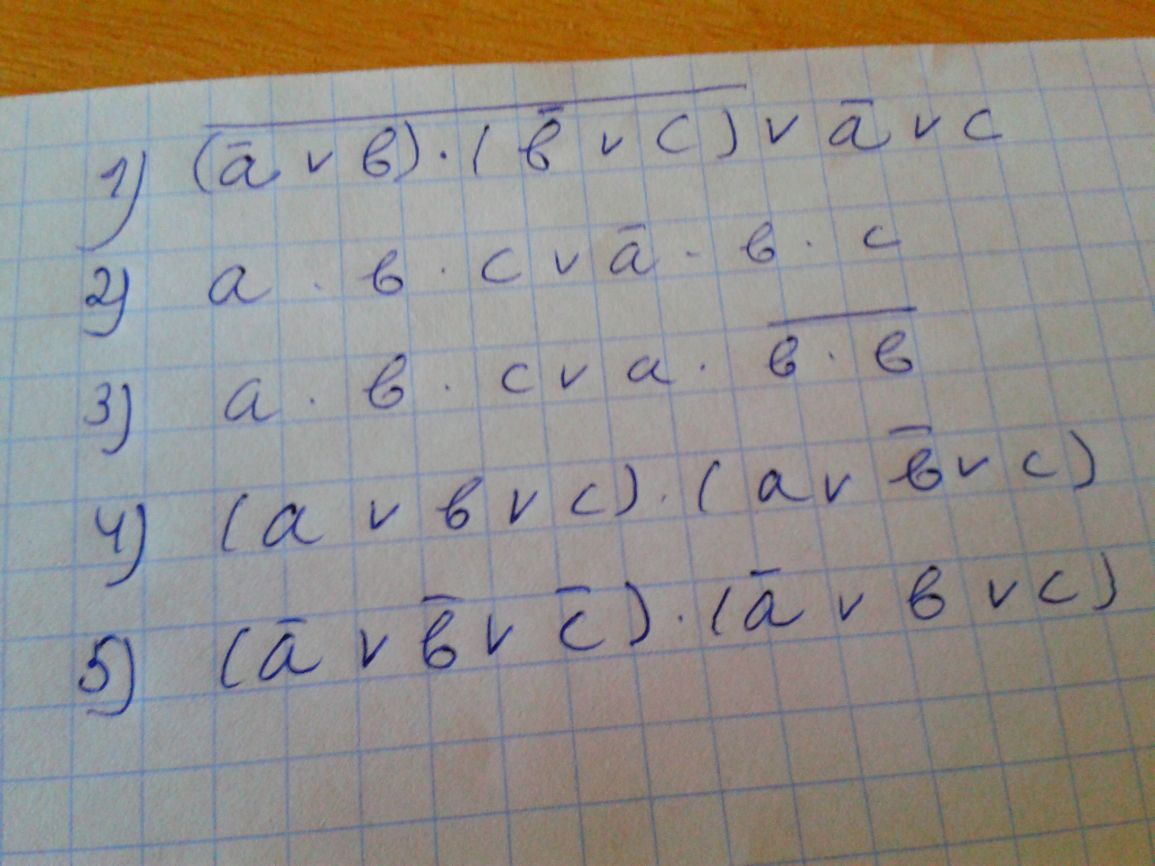 1) $\overline{(\bar{a} \vee в) \cdot (\bar{в} \vee c)} \vee \bar{a} \vee c$
2) $a \cdot в \cdot c \vee \bar{a} \cdot в \cdot c$
3) $a \cdot в \cdot c \vee a \cdot \overline{в \cdot в}$
4) $(a \vee в \vee c) \cdot (a \vee \bar{в} \vee c)$
5) $(\bar{a} \vee \bar{в} \vee \bar{c}) \cdot (\bar{a} \vee в \vee c)$